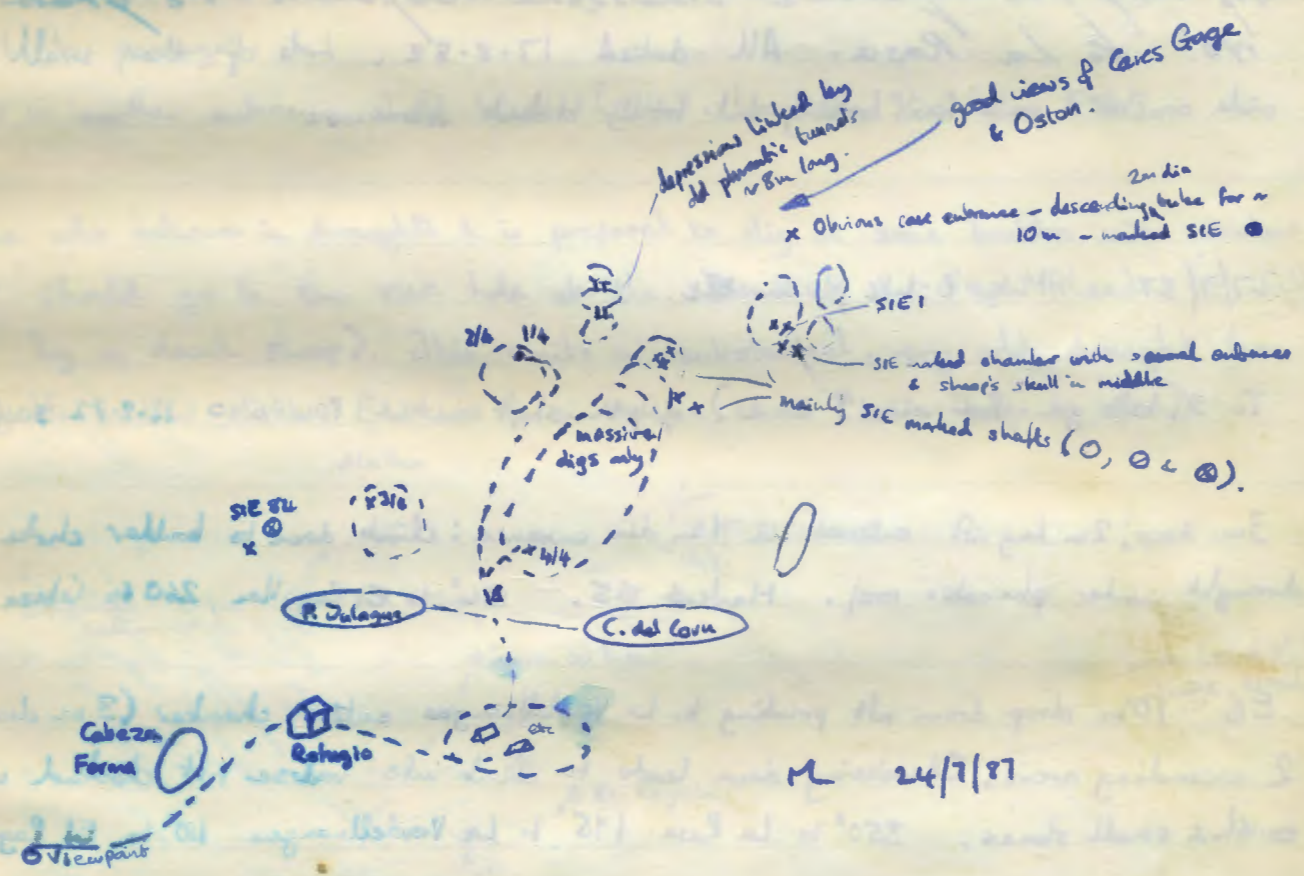 good views of Cares Gorge
& Ostón.
depressions linked by
old phreatic tunnels
~ 8m long.
2m dia
x Obvious cave entrance - descending tube for ~
10m - marked SIE
SIE 1
2/4
1/4
SIE marked chamber with several entrances
& sheep's skull in middle
mainly SIE marked shafts (
massive
digs only
SIE 84
x 3/4
x 4/4
P. Julagua
C. del Coru
Cabeza
Forma
Refugio
etc
24/7/87
Viewpoint